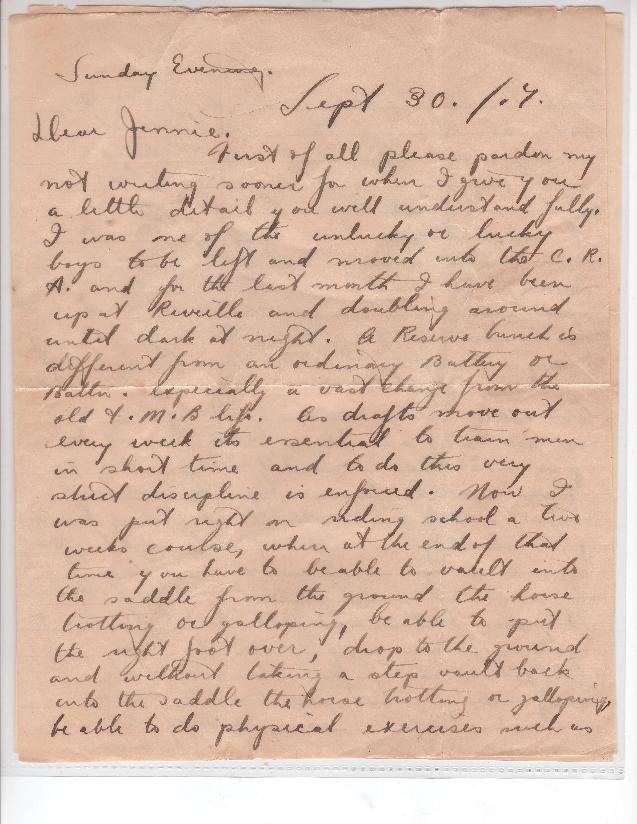 Sunday Evening.
Sept 30. /17.
Dear Jennie.
First of all please pardon my
not writing sooner for when I give you
a little detail you will understand fully.
I was one of the unlucky or lucky
boys to be left and moved into the C. R.
A. and for the last month I have been
up at Reveille and doubling around
until dark at night. A Reserve bunch is
different from an ordinary Battery or
Battn. especially a vast change from the
old T. M. B life. As drafts move out
every week its essential to train men
in short time and to do this very
strict discipline is enforced. Now I
was put right on riding school a two
weeks course, when at the end of that
time you have to be able to vault into
the saddle from the ground the horse
trotting or galloping, be able to put
the right foot over, drop to the ground
and without taking a step vault back
into the saddle the horse trotting or galloping,
be able to do physical exercises such as